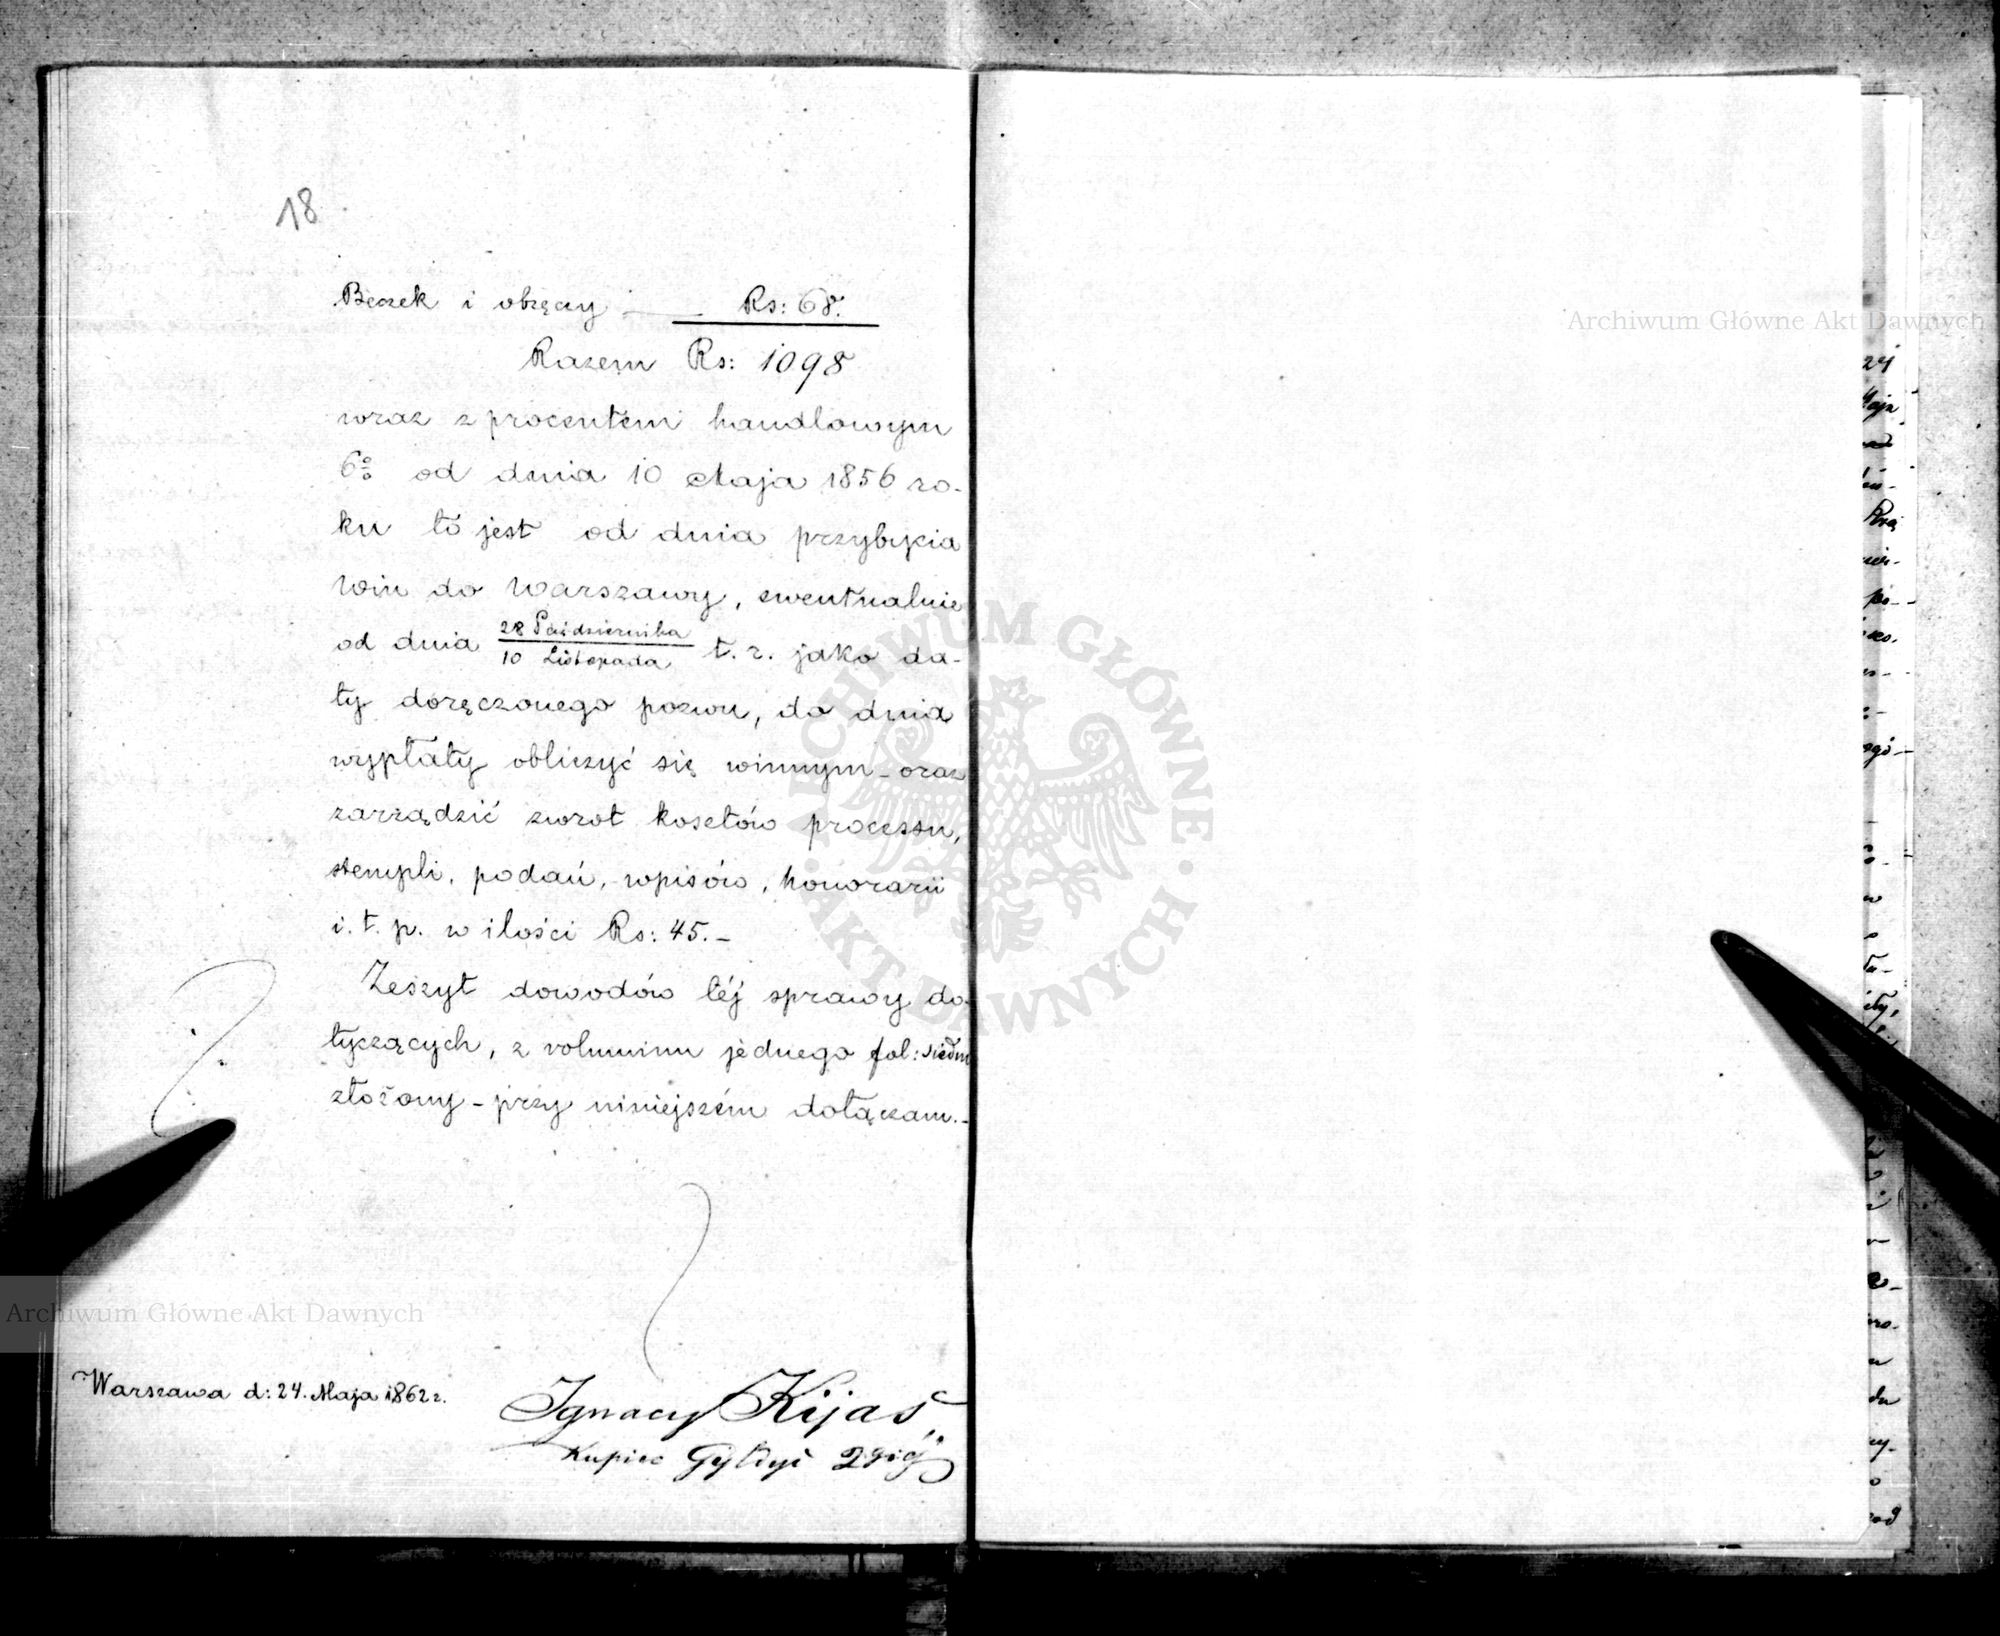 18
Beczek i obręczy — Rs: 68.
Razem Rs: 1098
wraz z procentem handlowym
6% od dnia 10 Maja 1856 ro-
ku to jest od dnia przybycia
Win do Warszawy, ewentualnie
od dnia 28 Października / 10 Listopada t. r. jako da-
ty doręczonego pozwu, do dnia
wypłaty obliczyć się winnym – oraz
zarządzić zwrot kosztów processu,
stempli, podań, wpisów, honorarii
i. t. p. w ilości Rs: 45. –
Zeszyt dowodów téj sprawy do-
tyczących, z voluminu jednego fol: siedm
złożony – przy niniejszém dołączam. –
Warszawa d: 24. Maja 1862 r.
Ignacy Kijas
Kupiec
Archiwum Główne Akt Dawnych
Archiwum Główne Akt Dawnych
ARCHIWUM GŁÓWNE · AKT DAWNYCH ·